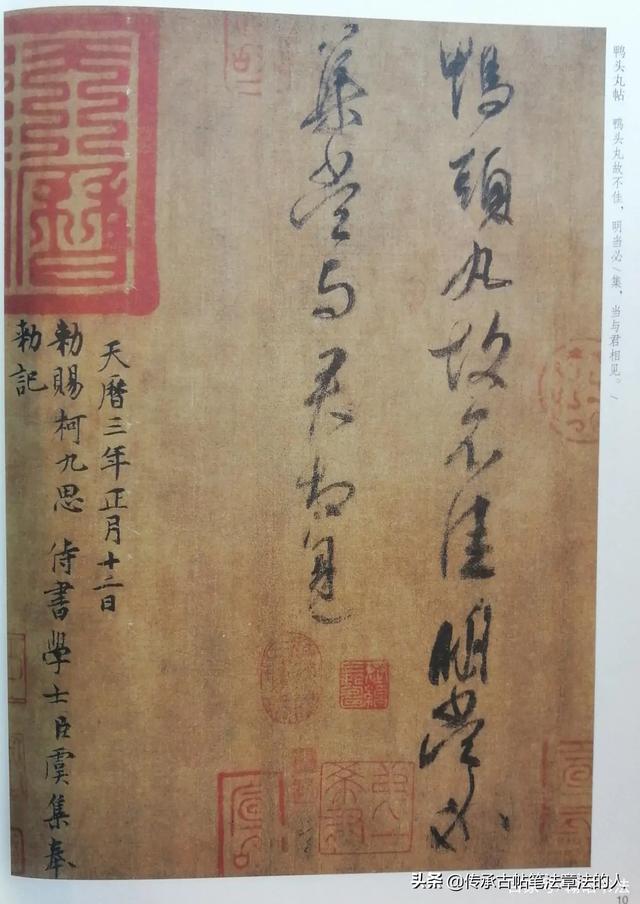 鸭头丸帖　鸭头丸故不佳，明当必/集，当与君相见。/
鴨頭丸故不佳明當必
集當与君相見
天曆三年正月十二日
勅賜柯九思侍書學士臣虞集奉
勅記
天曆
头条 @传承古帖笔法章法的人
10